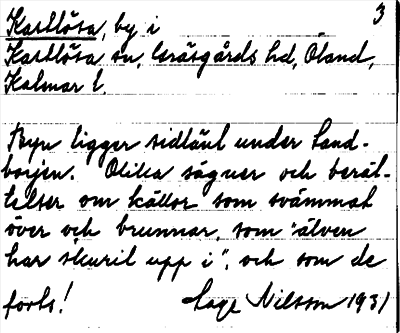 3
Kastlösa, by i
Kastlösa sn, Gräsgårds hd, Öland,
Kalmar l.
Byn ligger sidlänt under Land-
borjen. Olika sägner och berät-
telser om källor som svämmat
över och brunnar, som "älven
har skurit upp i", och som de
fools!
Åage Nilsson 1931